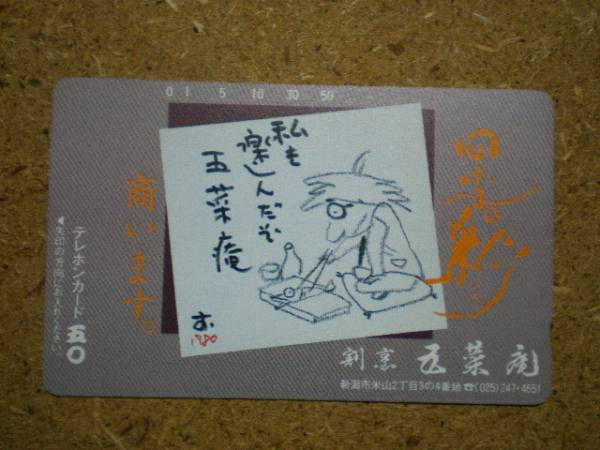 0 1 5 10 30 50
私も
楽しんだぞ
五菜庵
す.
1980
四季の彩り
商います。
◀矢印の方向にお入れください。
テレホンカード 五〇
割烹 五菜庵
新潟市米山2丁目3の4番地 ☎(025)247・4651